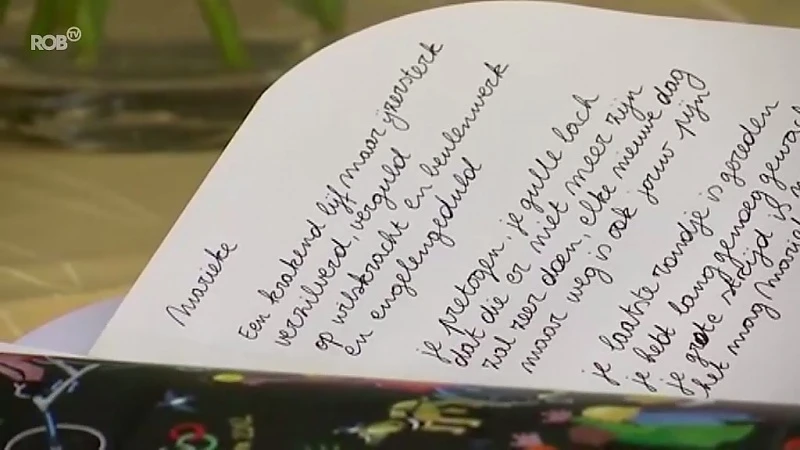 ROB tv
Marieke
Een krakend lijf maar ijzersterk
verzilverd, verguld
op wilskracht en beulenwerk
en engelengeduld
je pretogen, je gulle lach
dat die er niet meer zijn
zal zeer doen, elke nieuwe dag
maar weg is ook jouw pijn
je laatste rondje is gereden
je hebt lang genoeg
je grote strijd is
het mag